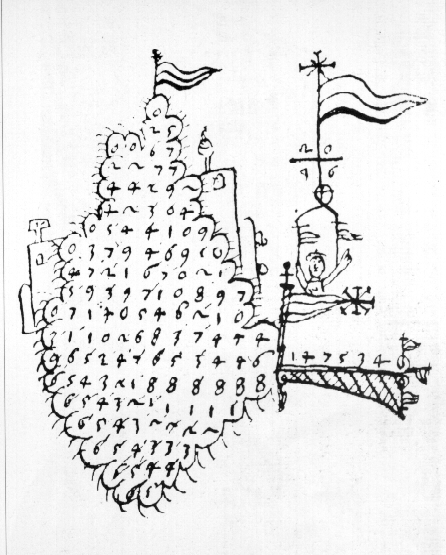 0
2 5
2 0
0 0 6 7
4 6
2 2 7 7
4 4 2 9 2
4 2 3 0 4
0 5 4 4 1 0 9
0 3 7 9 4 6 9 0
4 7 2 1 6 7 0 2 1
3 9 3 9 7 1 0 8 9 7
0 7 1 4 0 5 4 6 2 1 0
1 1 0 2 6 8 3 7 4 4 4
9 6 5 2 4 7 6 5 3 4 4 6 1 4 7 5 3 4 6
6 5 4 3 2 1 8 8 8 8 8 8 8
6 5 4 3 2 1 1 1 1 1
6 5 4 3 2 2 2
6 5 4 3 3 3
6 5 4 4
6 5